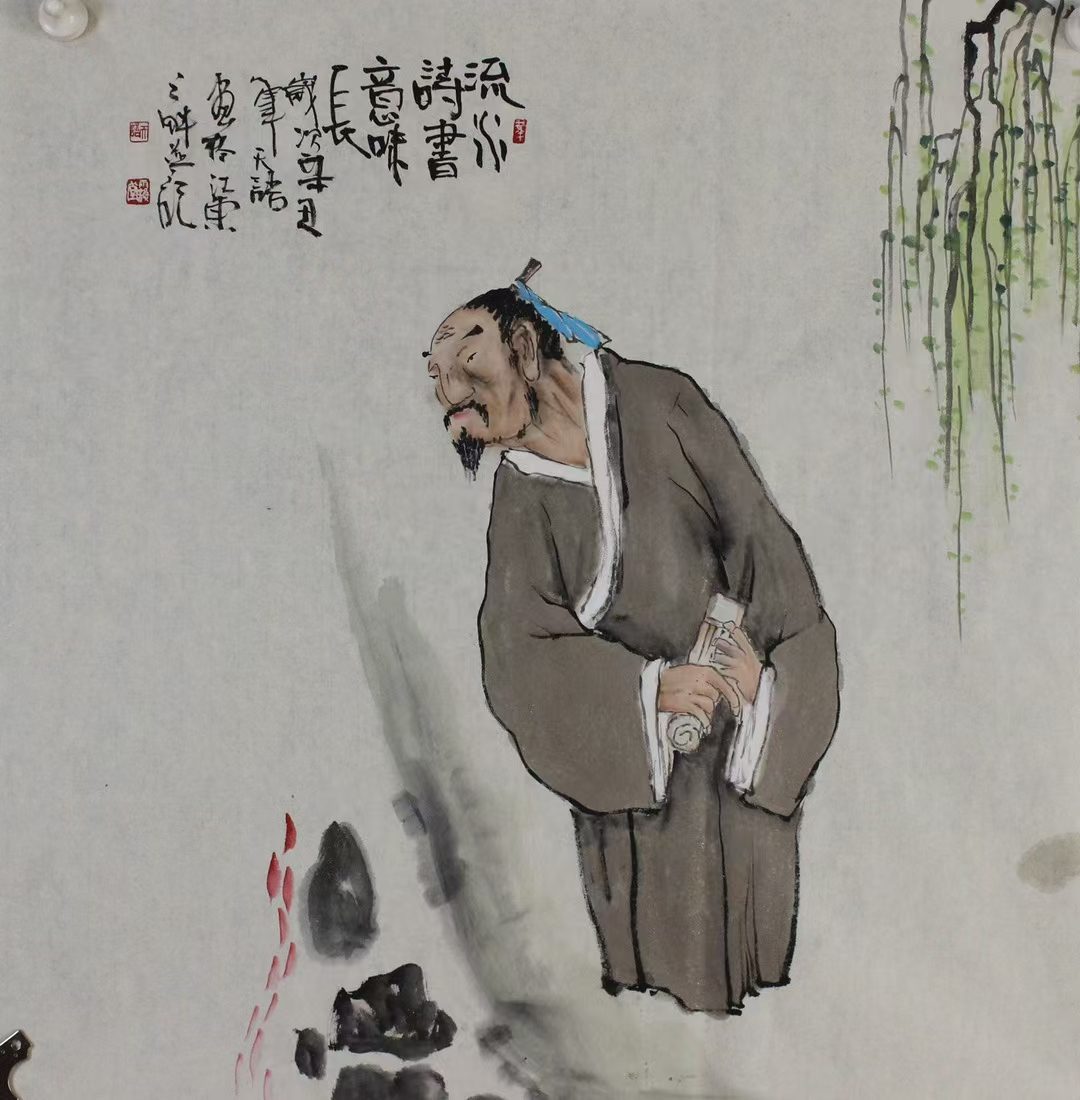 流水
詩書
意味
長
歲次辛丑
年天諾
畫於江東
之畔並記